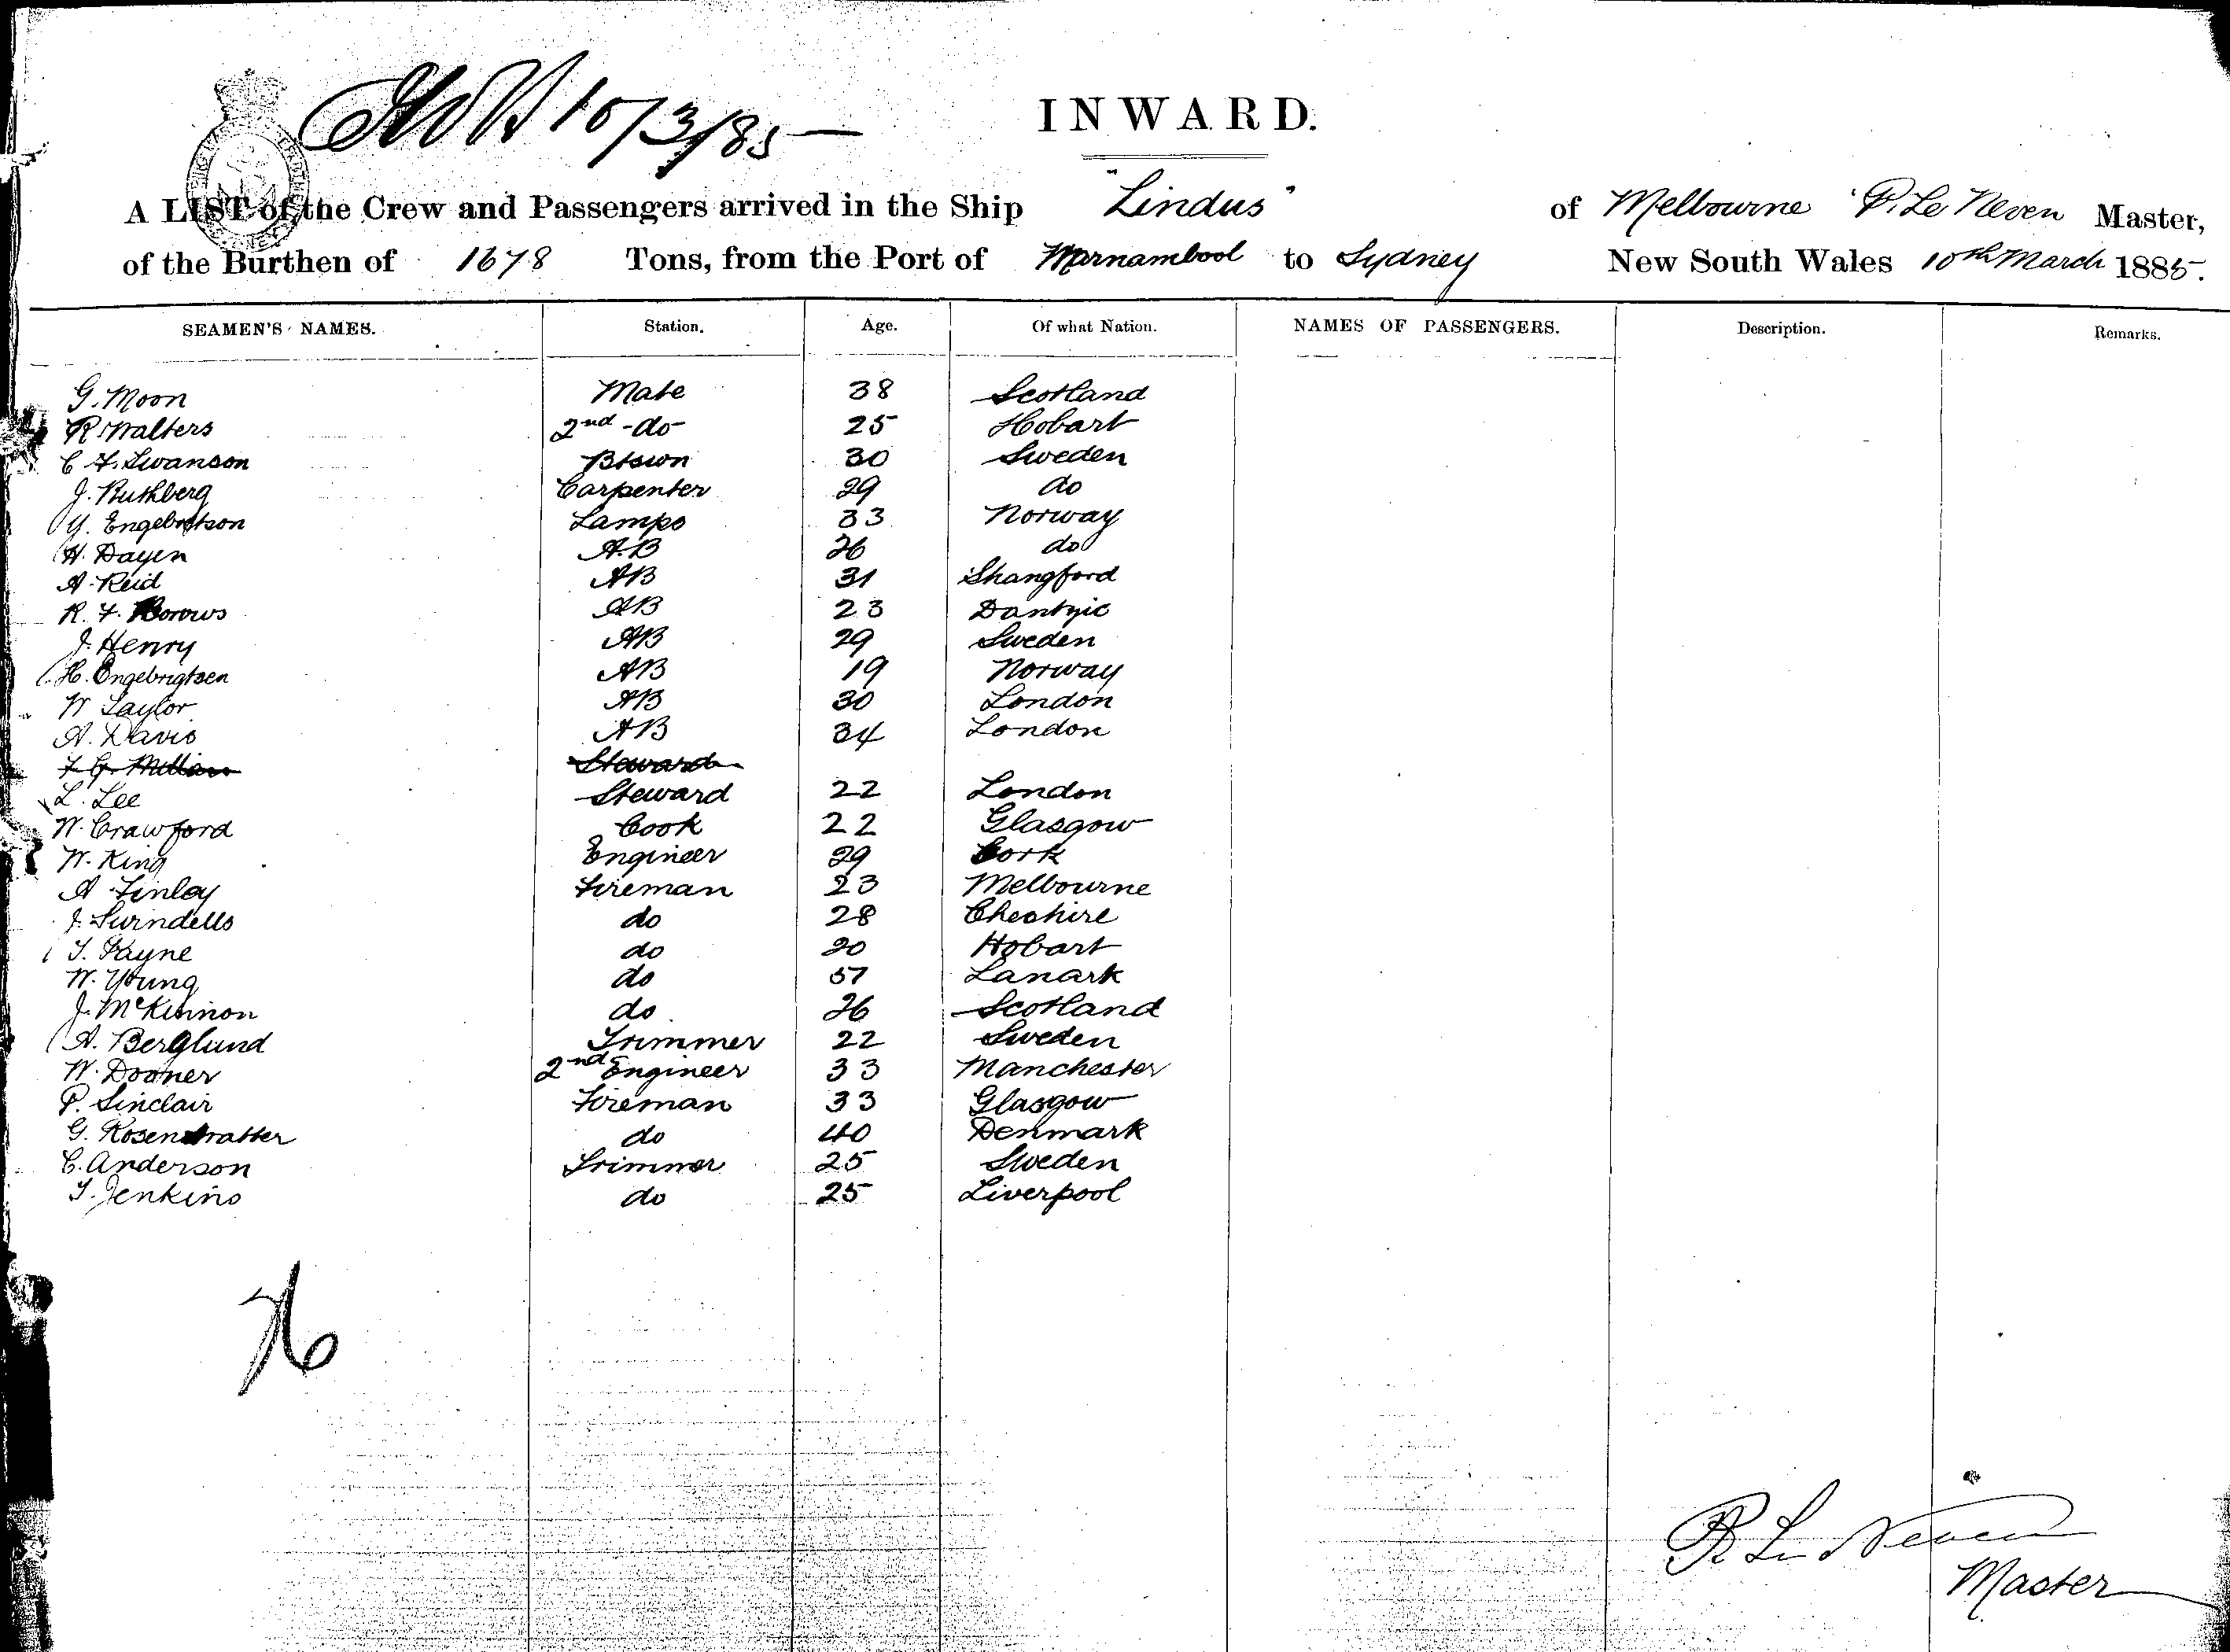 10/3/85
INWARD.
A LIST of the Crew and Passengers arrived in the Ship "Lindus" of Melbourne P. Le Neven Master,
of the Burthen of 1678 Tons, from the Port of Warnambool to Sydney New South Wales 10th March 1885.
SEAMEN'S NAMES. Station. Age. Of what Nation. NAMES OF PASSENGERS. Description. Remarks.
G. Moon Mate 38 Scotland
R Walters 2nd -do- 25 Hobart
C F. Swanson Btswn 30 Sweden
J. Ruthberg Carpenter 29 do
Y. Engebretson Lamps 33 Norway
H. Dayen A.B 26 do
A. Reid AB 31 Shangford
R. F. Borows AB 23 Dantzic
J. Henry AB 29 Sweden
H. Engebrigtsen AB 19 Norway
W Taylor AB 30 London
A. Davis AB 34 London
F G. Millar Steward
L. Lee Steward 22 London
W. Crawford Cook 22 Glasgow
W. King Engineer 29 Cork
A Finlay Fireman 23 Melbourne
J. Surndells do 28 Cheshire
T. Payne do 20 Hobart
W. Young do 57 Lanark
J. McKinnon do 26 Scotland
A. Berglund Trimmer 22 Sweden
W. Dooner 2nd Engineer 33 Manchester
P. Sinclair Fireman 33 Glasgow
G. Rosenstratter do 40 Denmark
C. Anderson Trimmer 25 Sweden
T. Jenkins do 25 Liverpool
26
P. Le Neven
Master